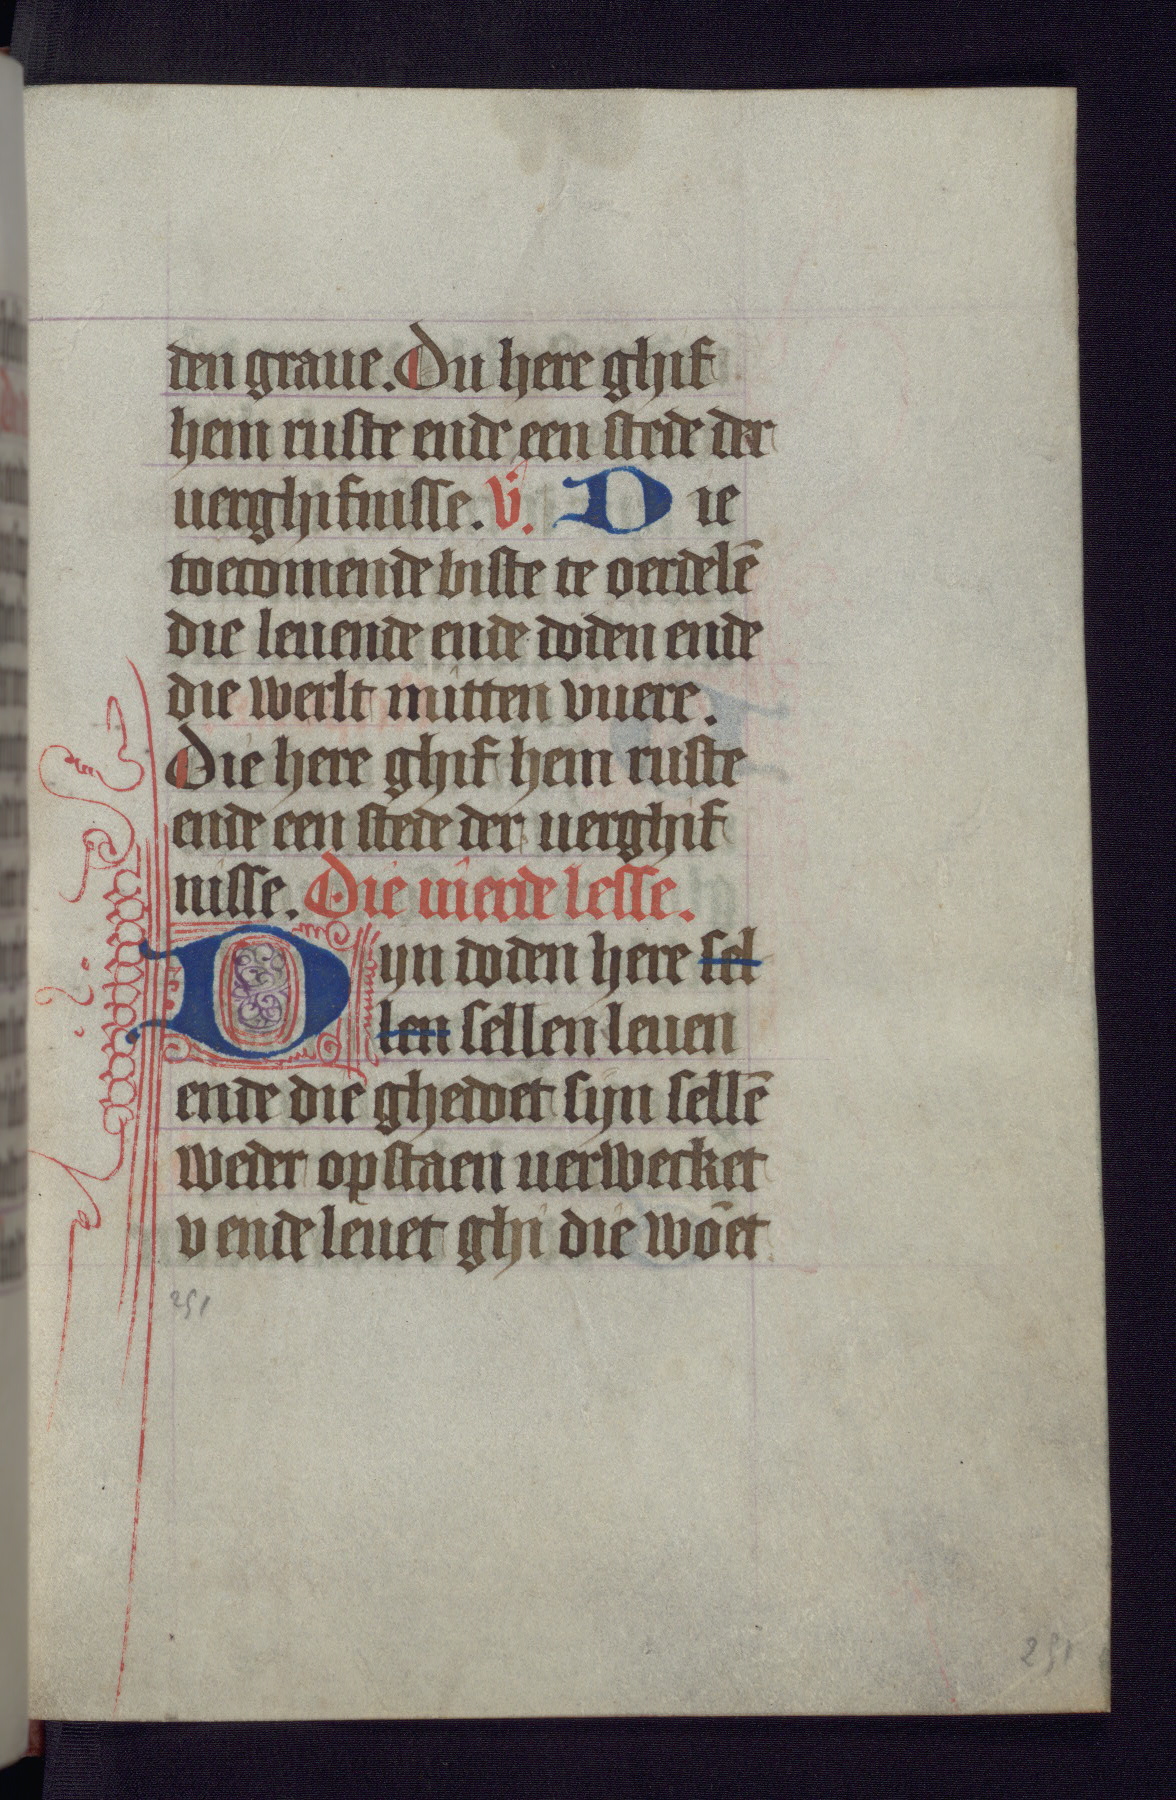 den graue. Du here ghif
hem ruste ende een stede der
uerghifnisse. V. Die
toecomende biste te oerdelē
die leuende ende doden ende
die werlt mitten vuere.
Die here ghif hem ruste
ende een stede der uerghif
nisse. Die uierde lesse.
Dyn doden here sel
len sellen leuen
ende die ghedoet sijn sellē
weder opstaen uerwecket
v ende leuet ghi die wōet
251
251